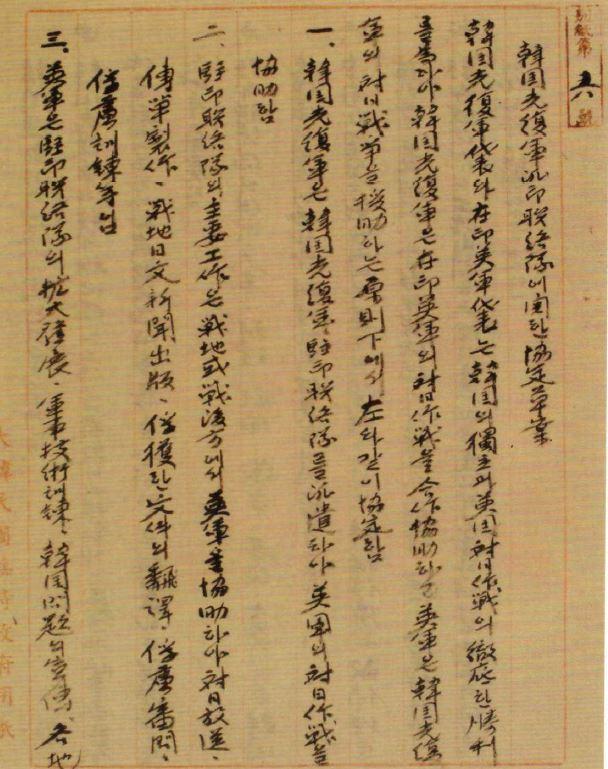 別紙第 六 號
韓国光復軍派印聯絡隊에 関한 協定草案
韓国光復軍代表와 在印英軍代表는 韓国의 獨立과 英国 対日作戦의 徹底한 勝利
를 爲하야 韓国光復軍은 在印英軍의 対日作戦을 合作協助하고 英軍은 韓国光復
軍의 対日戦爭을 援助하는 原則下에서 左와 같이 協定함
一、韓国光復軍은 韓国光復軍駐印聯絡隊를 派遣하야 英軍의 対日作戦을
協助함
二、駐印聯絡隊의 主要工作은 戦地或戦後方에서 英軍을 協助하야 対日放送、
傳単製作、戦地日文新聞出版、俘獲한 文件의 翻譯、俘虜審問、
俘虜訓練等임
三、英軍은 駐印聯絡隊의 拡大發展、軍事技術訓練、韓国問題의 宣傳、各地
大韓民國臨時政府用紙